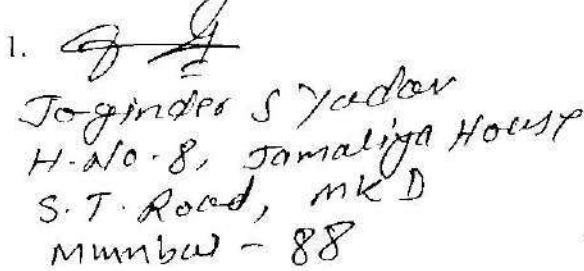 1.
Joginder S Yadav
H.No.8, Jamaliya House
S.T. Road, MKD
Mumbai - 88